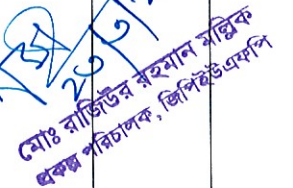 মোঃ রাজিউর রহমান মল্লিক
প্রকল্প পরিচালক, জিপিইউএফপি